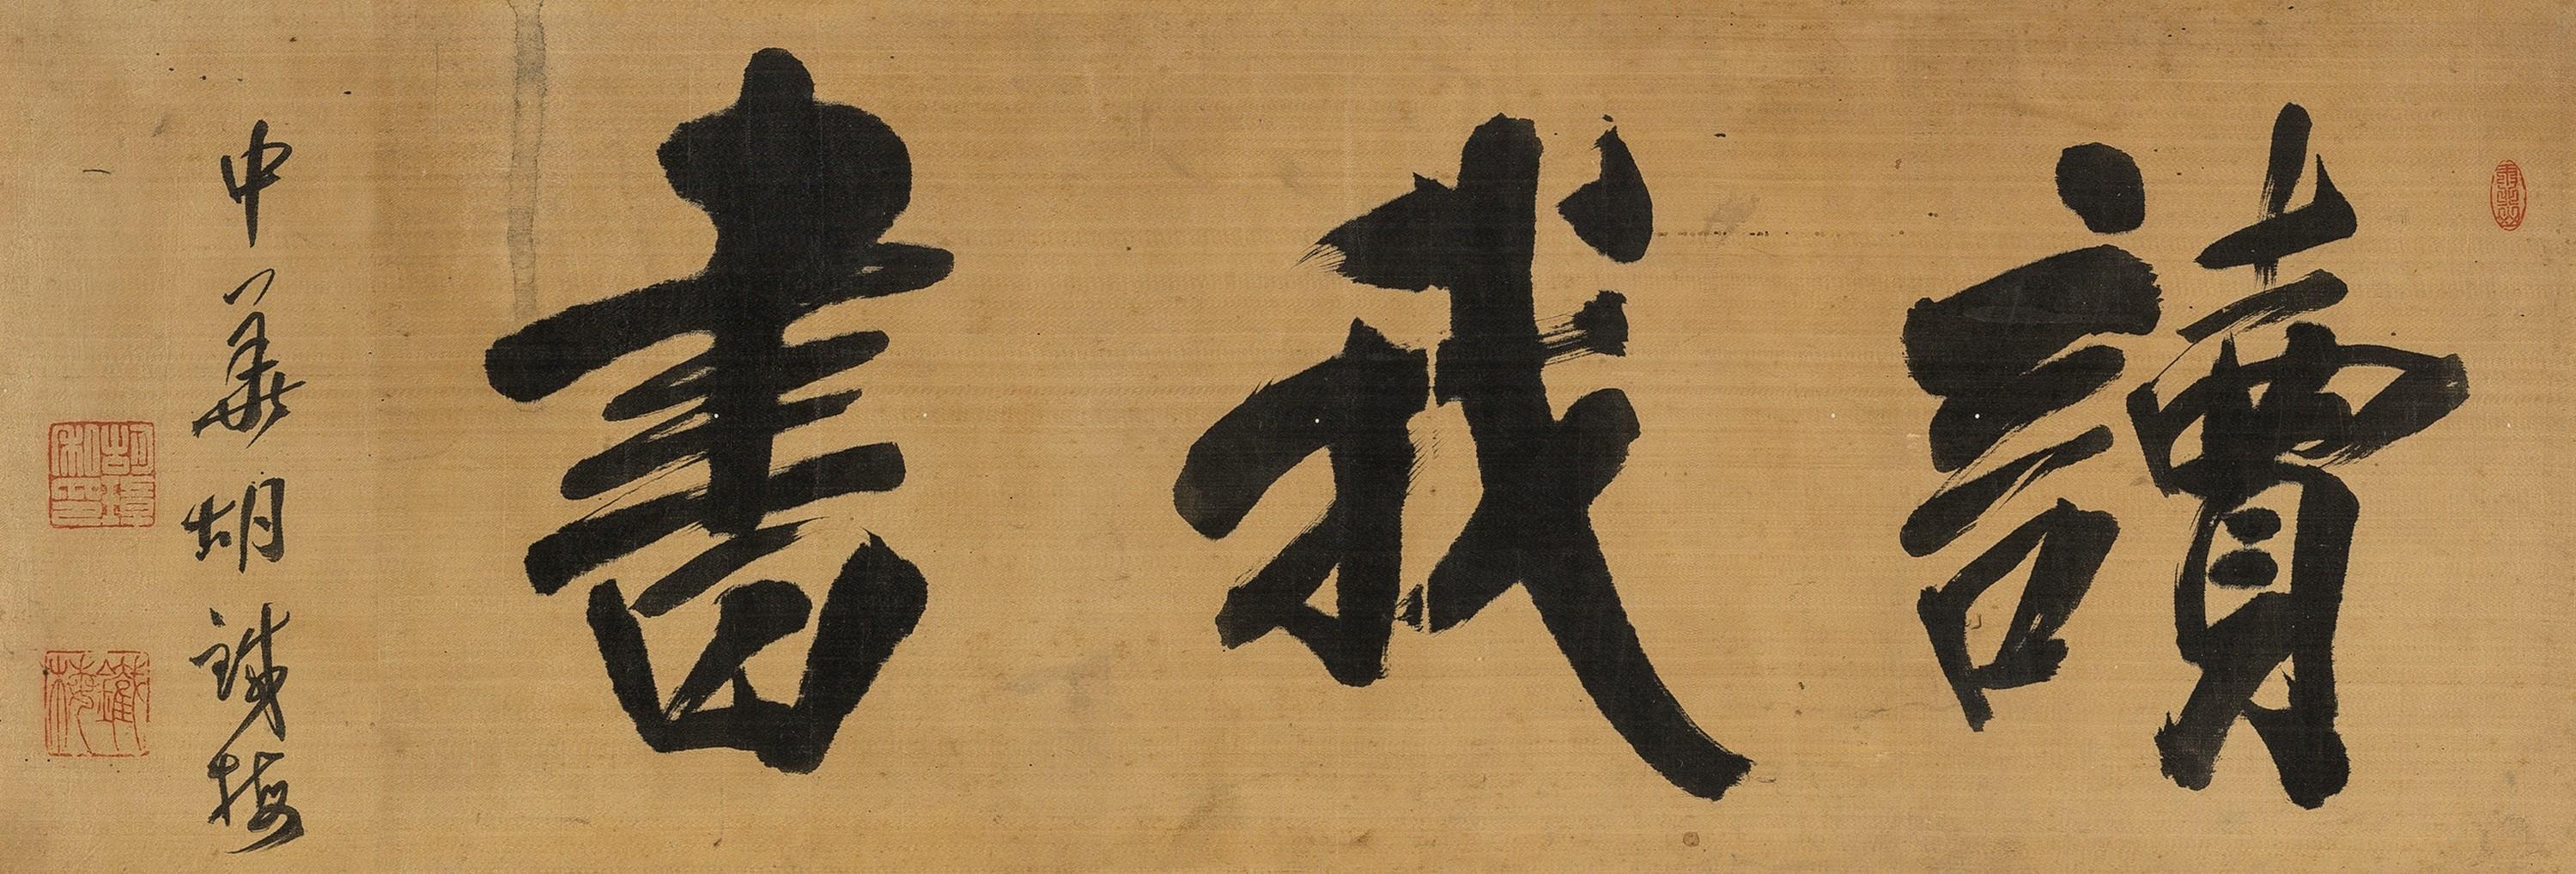 讀我書
中華胡鐵梅
胡璋私印
鐵梅